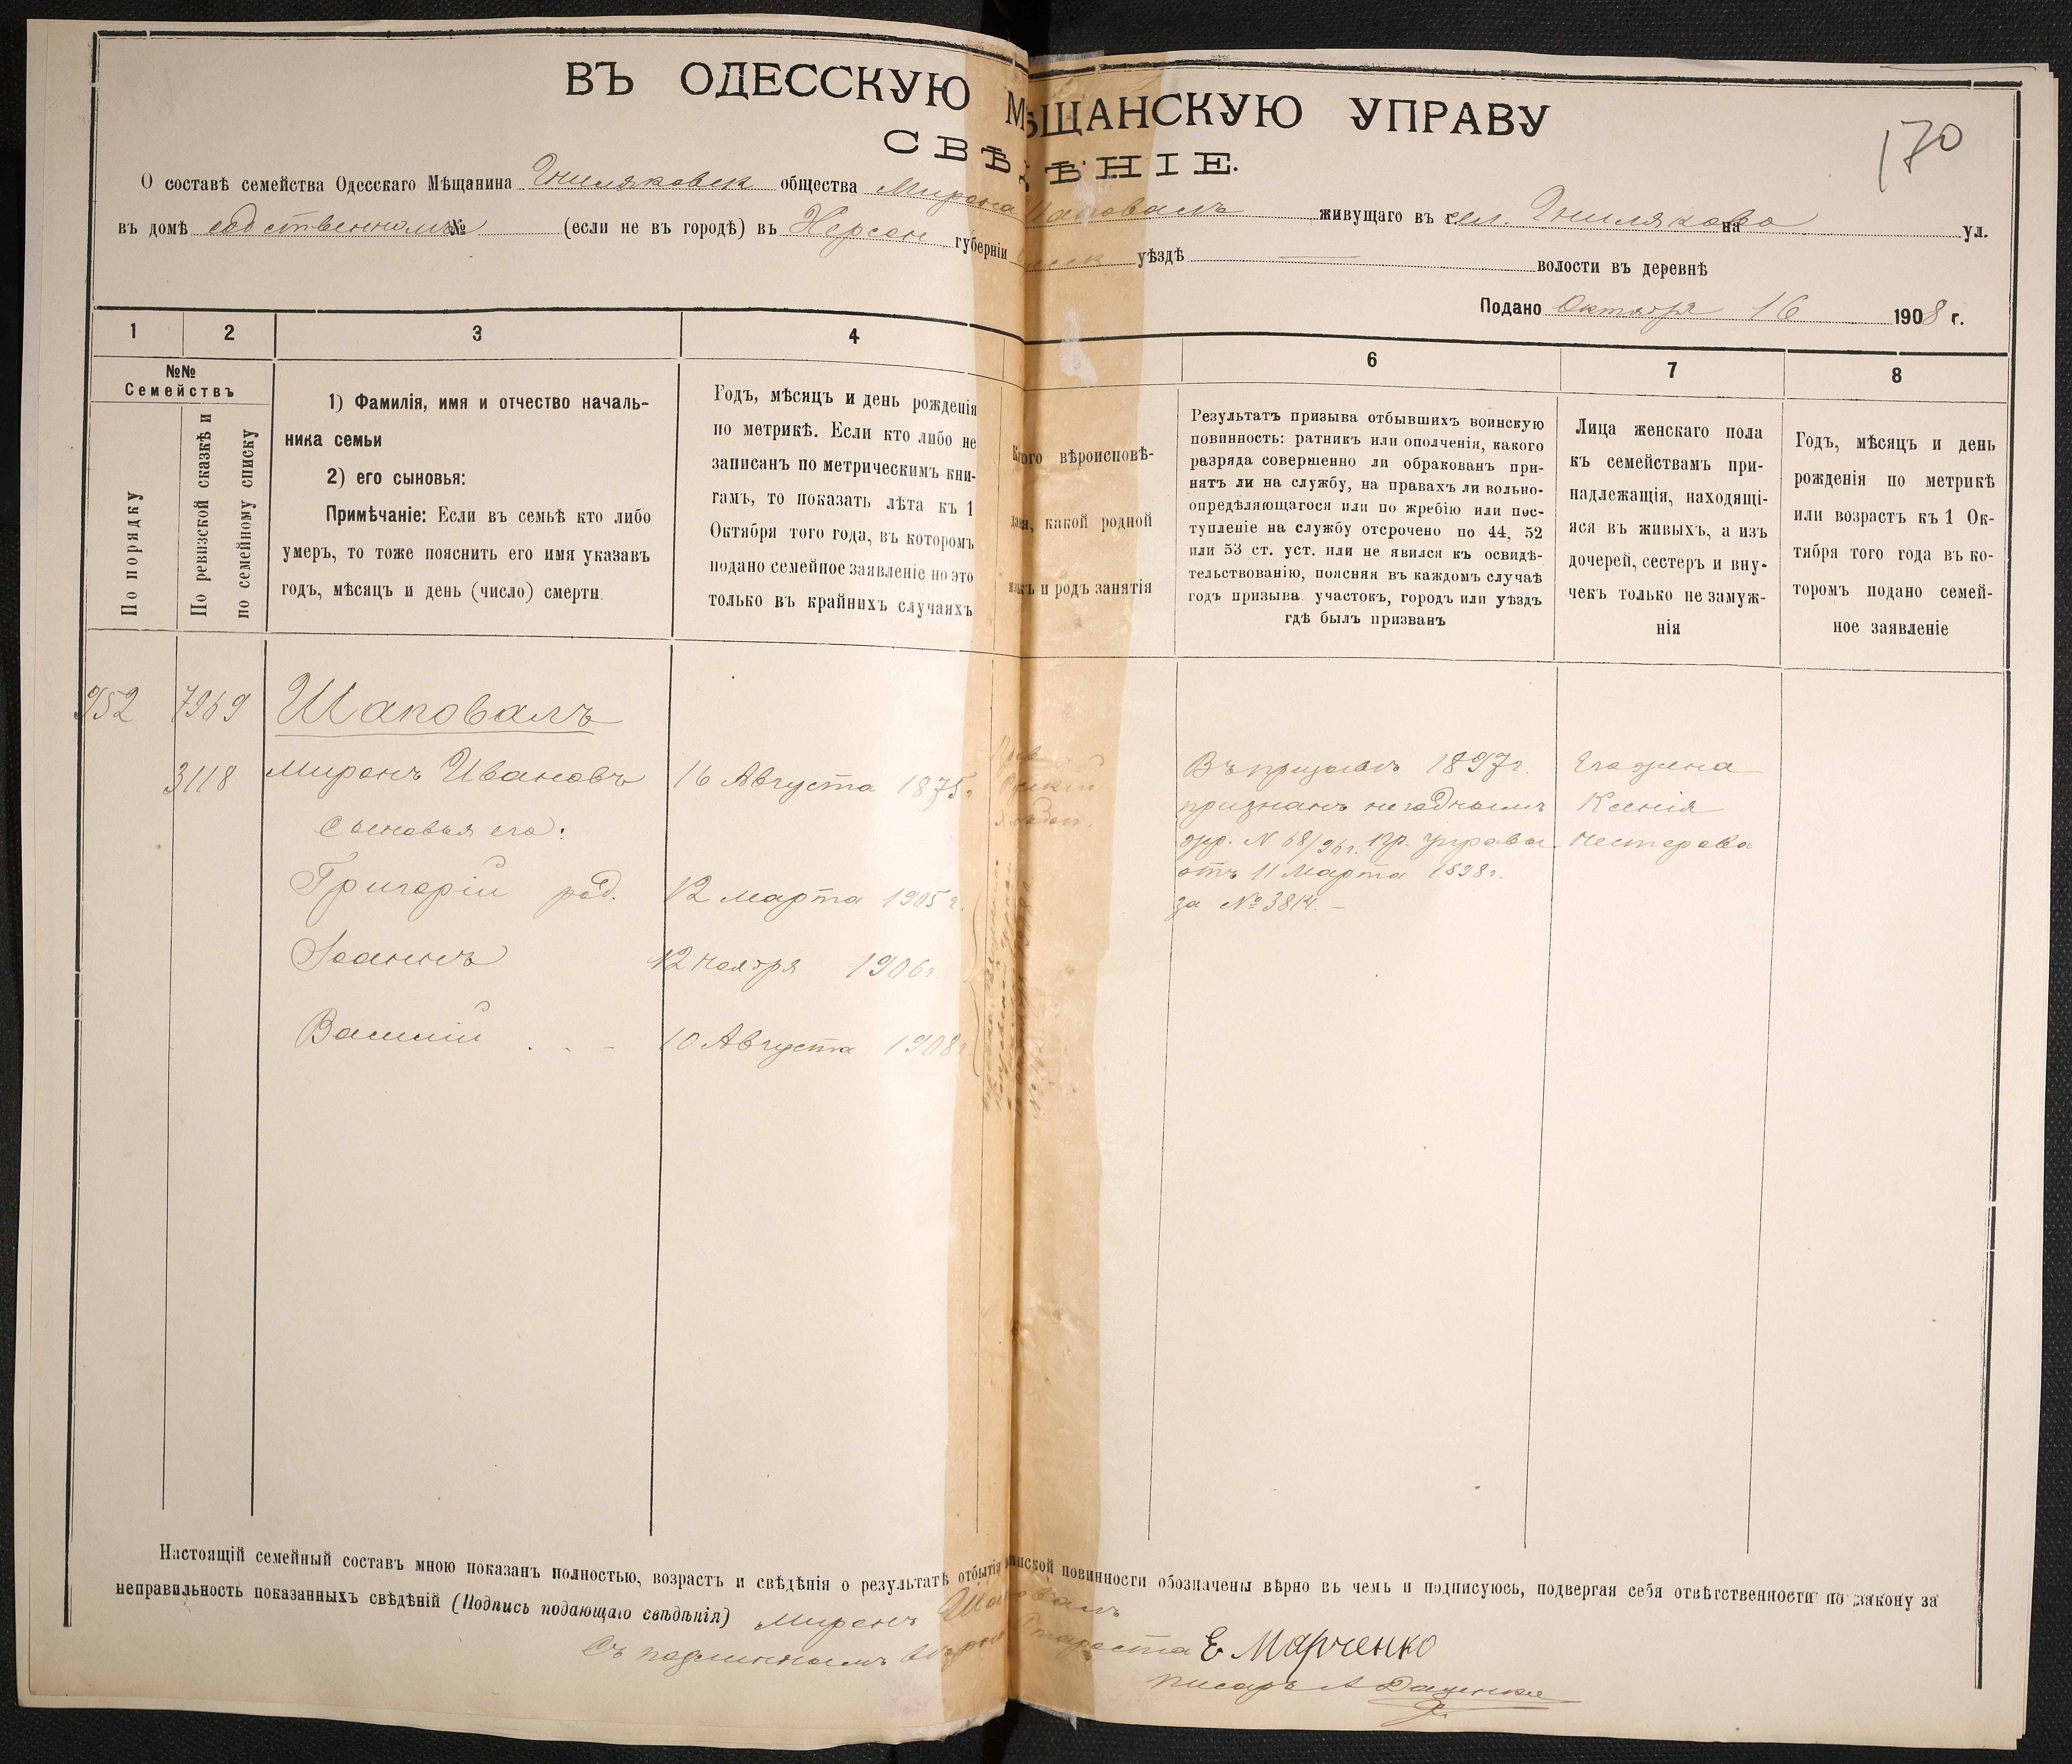 ВЪ ОДЕССКУЮ МѢЩАНСКУЮ УПРАВУ
СВѢДѢНІЕ.
170
О составѣ семейства Одесскаго Мѣщанина Гниляковск общества Мирона Шаповалъ живущаго въ г. сел. Гниляково на ул.
въ домѣ собственномъ № (если не въ городѣ) въ Херсон губерніи уѣздѣ — волости въ деревнѣ
Подано Октября 16 1908 г.
1 2 3 4 6 7 8
№№
Семействъ
По порядку
По ревизской сказкѣ и
по семейному списку
1) Фамилія, имя и отчество началь-
ника семьи
2) его сыновья:
Примѣчаніе: Если въ семьѣ кто либо
умеръ, то тоже пояснить его имя указавъ
годъ, мѣсяцъ и день (число) смерти.
Годъ, мѣсяцъ и день рожденія
по метрикѣ. Если кто либо не
записанъ по метрическимъ кни-
гамъ, то показать лѣта къ 1
Октября того года, въ которомъ
подано семейное заявленіе но это
только въ крайнихъ случаяхъ
Какого вѣроисповѣ-
данія, какой родной
языкъ и родъ занятія
Результатъ призыва отбывшихъ воинскую
повинность: ратникъ или ополченія, какого
разряда совершенно ли обракованъ при-
нятъ ли на службу, на правахъ ли вольно-
опредѣляющагося или по жребію или пос-
тупленіе на службу отсрочено по 44, 52
или 53 ст. уст. или не явился къ освидѣ-
тельствованію, поясняя въ каждомъ случаѣ
годъ призыва участокъ, городъ или уѣздъ
гдѣ былъ призванъ
Лица женскаго пола
къ семействамъ при-
надлежащія, находящі-
яся въ живыхъ, а изъ
дочерей, сестеръ и вну-
чекъ только не замуж-
нія
Годъ, мѣсяцъ и день
рожденія по метрикѣ
или возрастъ къ 1 Ок-
тября того года въ ко-
торомъ подано семей-
ное заявленіе
952 7969 Шаповалъ
3118 Миронъ Ивановъ 16 Августа 1875 г
Сыновья его:
Григорій род. 12 марта 1905 г.
Іоаннъ 12 ноября 1906 г.
Василій . . - 10 Августа 1908 г
Прав
Русскій
Хлѣбоп.
Въ призывъ 1897 г.
признанъ негоднымъ
жур. N 68/96 г. пр. управы
отъ 11 Марта 1898 г.
за № 3814. —
Его жена
Ксенія
Нестерова
Настоящій семейный составъ мною показанъ полностью, возрастъ и свѣдѣнія о результатѣ отбытія воинской повинности обозначены вѣрно въ чемъ и подписуюсь, подвергая себя отвѣтственности по закону за
неправильность показанныхъ свѣдѣній (Подпись подающаго свѣдѣнія) Миронъ Шаповалъ
Съ подлиннымъ вѣрно Староста Е Марченко
писарь А Даценко